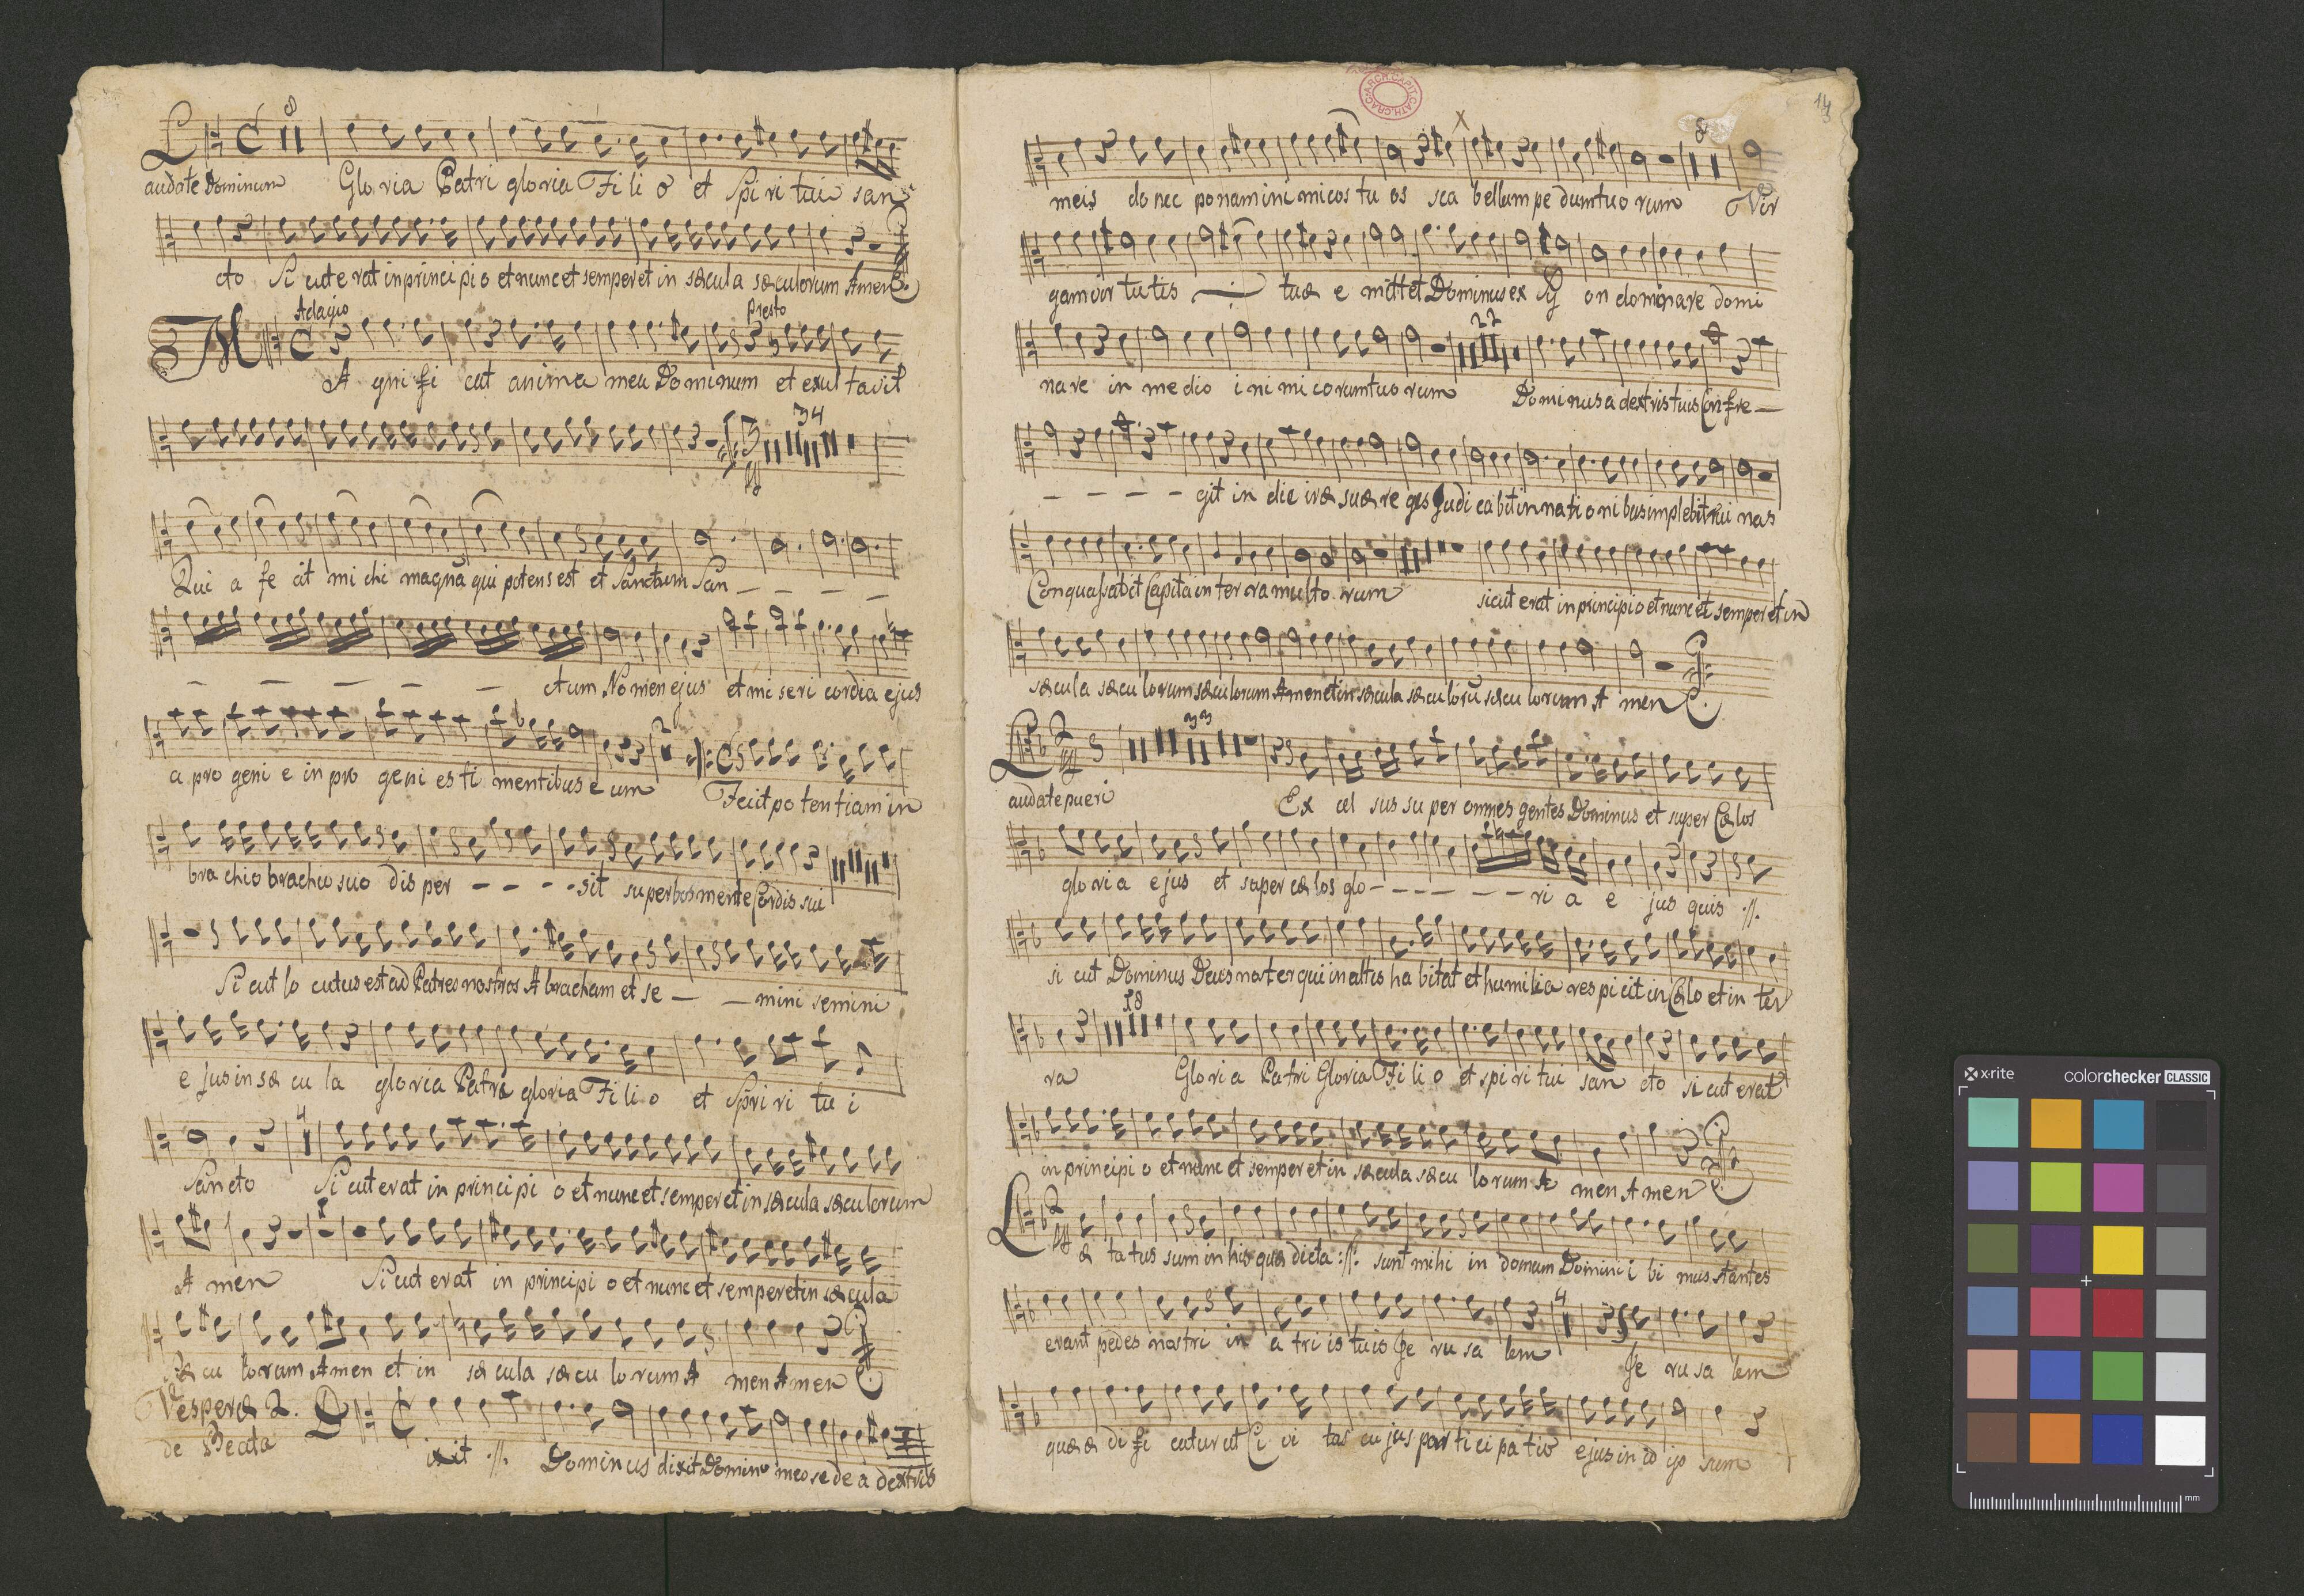 8
Laudate Dominum Gloria Patri gloria Fi li o et Spi ri tui san
cto Si cut e rat in princi pi o et nunc et semper et in sæcula sæculorum Amen
Adagio Presto
M A gni fi cat anima mea Dominum et exul tavit
34
Qui a fe cit mi chi magna qui potens est et Sanctum San - - - -
- - - - - ctum Nomen ejus et mi seri cordia ejus
2
a pro geni e in pro geni es ti mentibus e um Fecit po tentiam in
bra chio brachio suo dis per - - - - sit superbos mente Cordis sui
Si cut lo cutus est ad Patres nostros Abracham et se - - mini semini
e jus in sæ cu la gloria Patri gloria Fi li o et Spri ri tu i
4
San cto Si cut erat in princi pi o et nunc et semper et in sæcula sæculorum
A men Si cut erat in principi o et nunc et semper et in sæcula
sæ cu lorum Amen et in sæ cula sæ cu lo rum A men Amen
Vesperæ 2.
de Beata
D ixit :/: Dominus dixit Domino meo se de a dextris
14
ARCH. CAPIT. CATH. CRAC.
X 8
meis do nec ponam ini micos tu os sca bellum pe dum tuo rum Vir
gam vir tu tis tuæ e mittet Dominus ex Sy on dominare domi
22
nare in me dio i ni mi corum tuo rum Dominus a dextris tuis Con fre -
- - - - git in die iræ suæ re ges Judi ca bit in nati o ni bus implebit rui nas
Conquassabit Capita in ter ra multo rum sicut erat in principio et nunc et semper et in
sæcula sæcu lorum sæculorum Amen et in sæcula sæcu lorū sæcu lorum A men
33
Laudate pueri Ex cel sus su per omnes gentes Dominus et super Cælos
gloria ejus et super cæ los glo - - - - - - ri a e jus quis :/:
si cut Dominus Deus noster qui in altis ha bitat et humilia res pi cit in Cælo et in ter
18
ra Glori a Patri Gloria Fi li o et spi ri tui san cto si cut erat
in principi o et nunc et semper et in sæcula sæcu lo rum A men Amen
L æ ta tus sum in his quæ dicta :/: sunt mihi in domum Domini i bi mus stantes
4
erant pedes nostri in a tri is tuis Je ru sa lem Je ru sa lem
quæ æ di fi catur ut Ci vi tas cu jus par ti ci pa tio ejus in id ip sum
x·rite colorchecker CLASSIC
mm